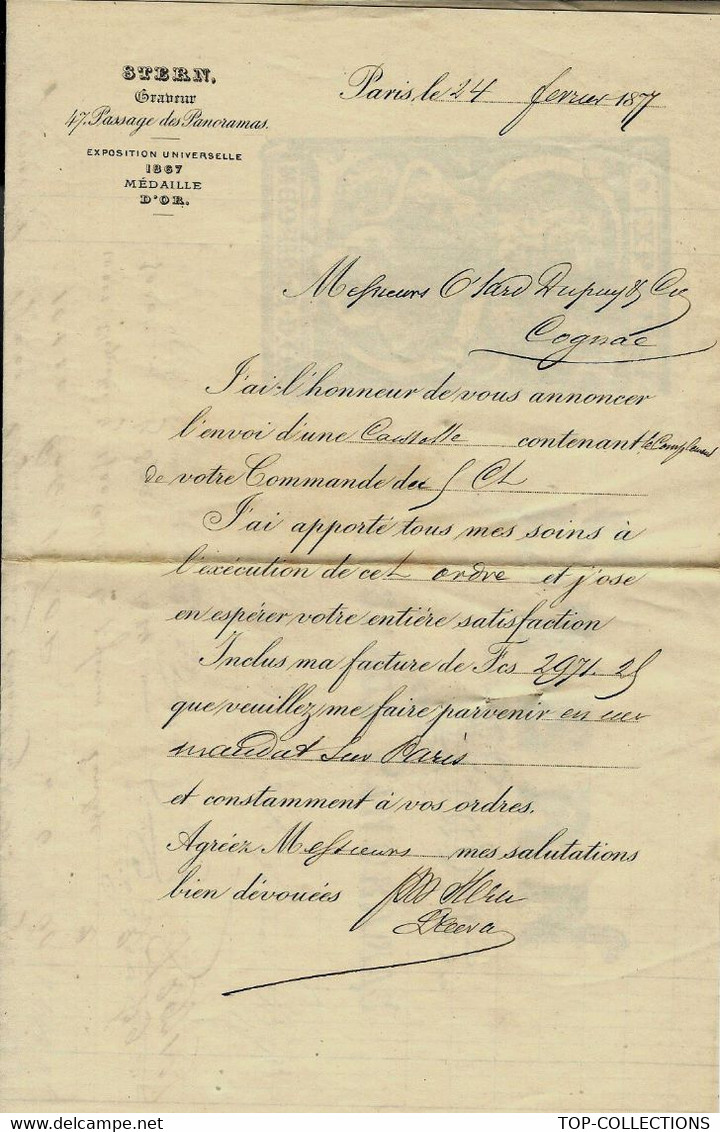 STERN,
Graveur
47, Passage des Panoramas.
EXPOSITION UNIVERSELLE
1867
MÉDAILLE
D'OR.
Paris, le 24 fevrier 1877
Messieurs Otard Dupuy & Cie
Cognac
J'ai l'honneur de vous annoncer
l'envoi d'une Caissette contenant le Complement
de votre Commande du 5 Ct
J'ai apporté tous mes soins à
l'exécution de cet ordre et j'ose
en espérer votre entiére satisfaction
Inclus ma facture de Fcs 2971.25
que veuillez me faire parvenir en un
mandat sur Paris
et constamment à vos ordres.
Agréez Messieurs mes salutations
bien dévouées Stern
https://www.delcampe.net
TOP-COLLECTIONS